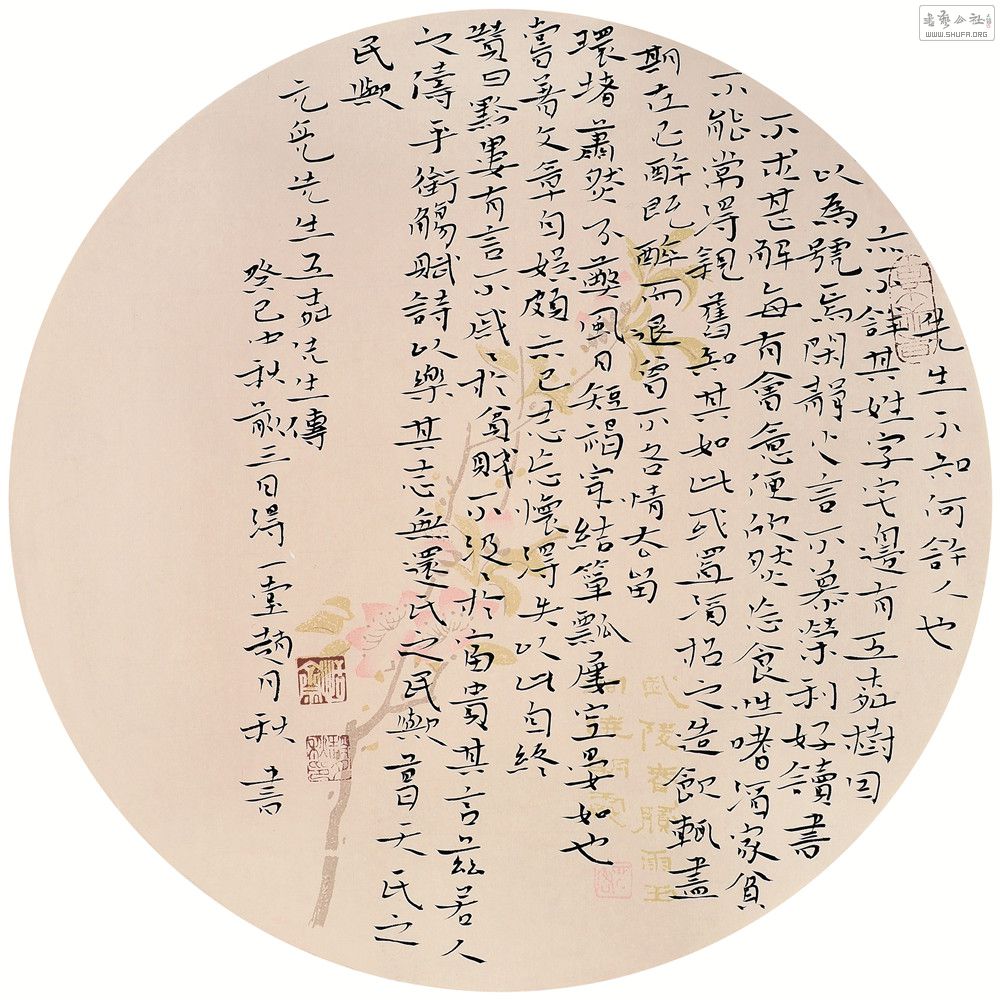 先生不知何許人也
亦不詳其姓字宅邊有五柳樹因
以為號焉閑靜少言不慕榮利好讀書
不求甚解每有會意便欣然忘食性嗜酒家貧
不能常得親舊知其如此或置酒招之造飲輒盡
期在必醉既醉而退曾不吝情去留
環堵蕭然不蔽風日短褐穿結簞瓢屢空晏如也
嘗著文章自娛頗示己志忘懷得失以此自終
贊曰黔婁有言不戚〻於貧賤不汲〻於富貴其言茲若人
之儔乎銜觴賦詩以樂其志無還氏之民歟葛天氏之
民歟
元亮先生五柳先生傳
癸巳中秋前三日得一堂趙月秋書
書藝公社
WWW.SHUFA.ORG